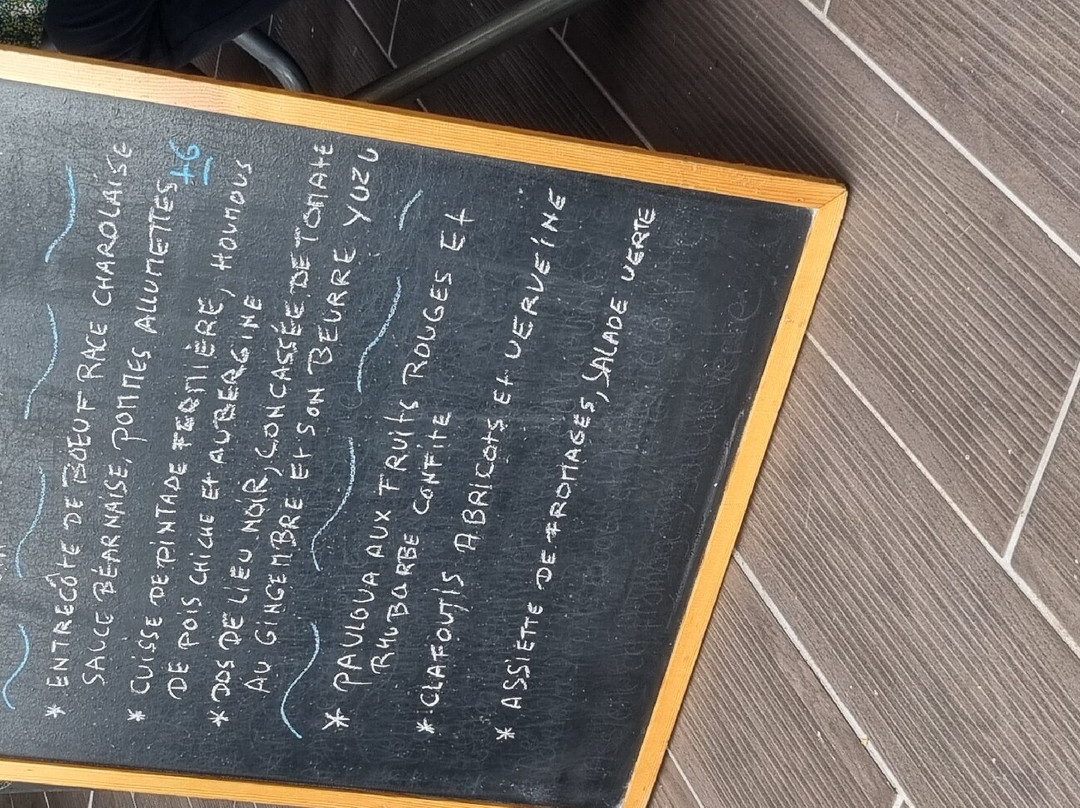 * ENTRECÔTE DE BOEUF RACE CHAROLAISE
SAUCE BÉARNAISE, POMMES ALLUMETTES +6
* CUISSE DE PINTADE FERMIÈRE, HOUMOUS
DE POIS CHICHE Et AUBERGINE
* DOS DE LIEU NOIR, CONCASSÉE DE TOMATE
AU GINGEMBRE Et SON BEURRE YUZU
* PAVLOVA AUX FRUITS ROUGES Et
RHUBARBE CONFITE
* CLAFOUTIS ABRICOTS Et VERVEINE
* ASSIETTE DE FROMAGES, SALADE VERTE